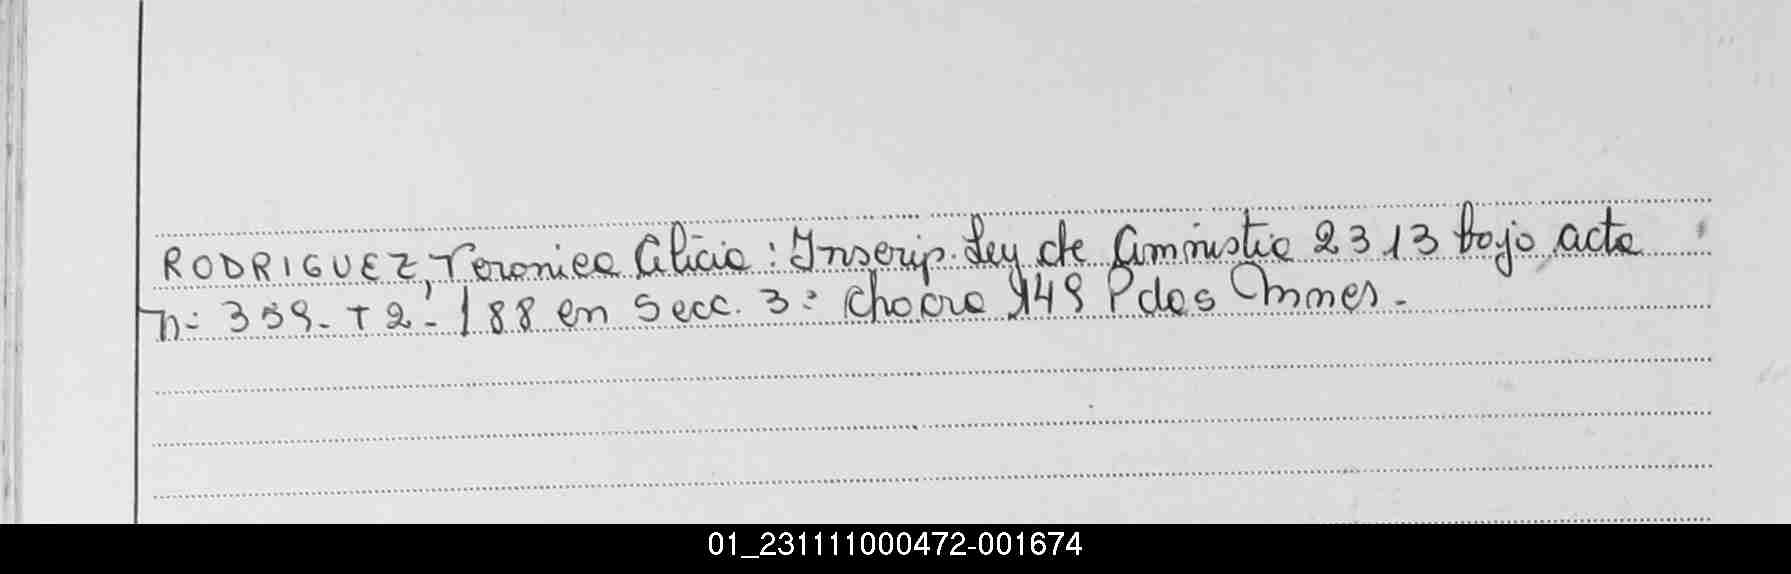 RODRIGUEZ, Veronica Alicia: Inscrip. Ley de Amnistia 2313 bajo acta
n: 359- T 2'- 188 en Secc. 3: Chacra 149 Pdas Mnes.-
01_231111000472-001674